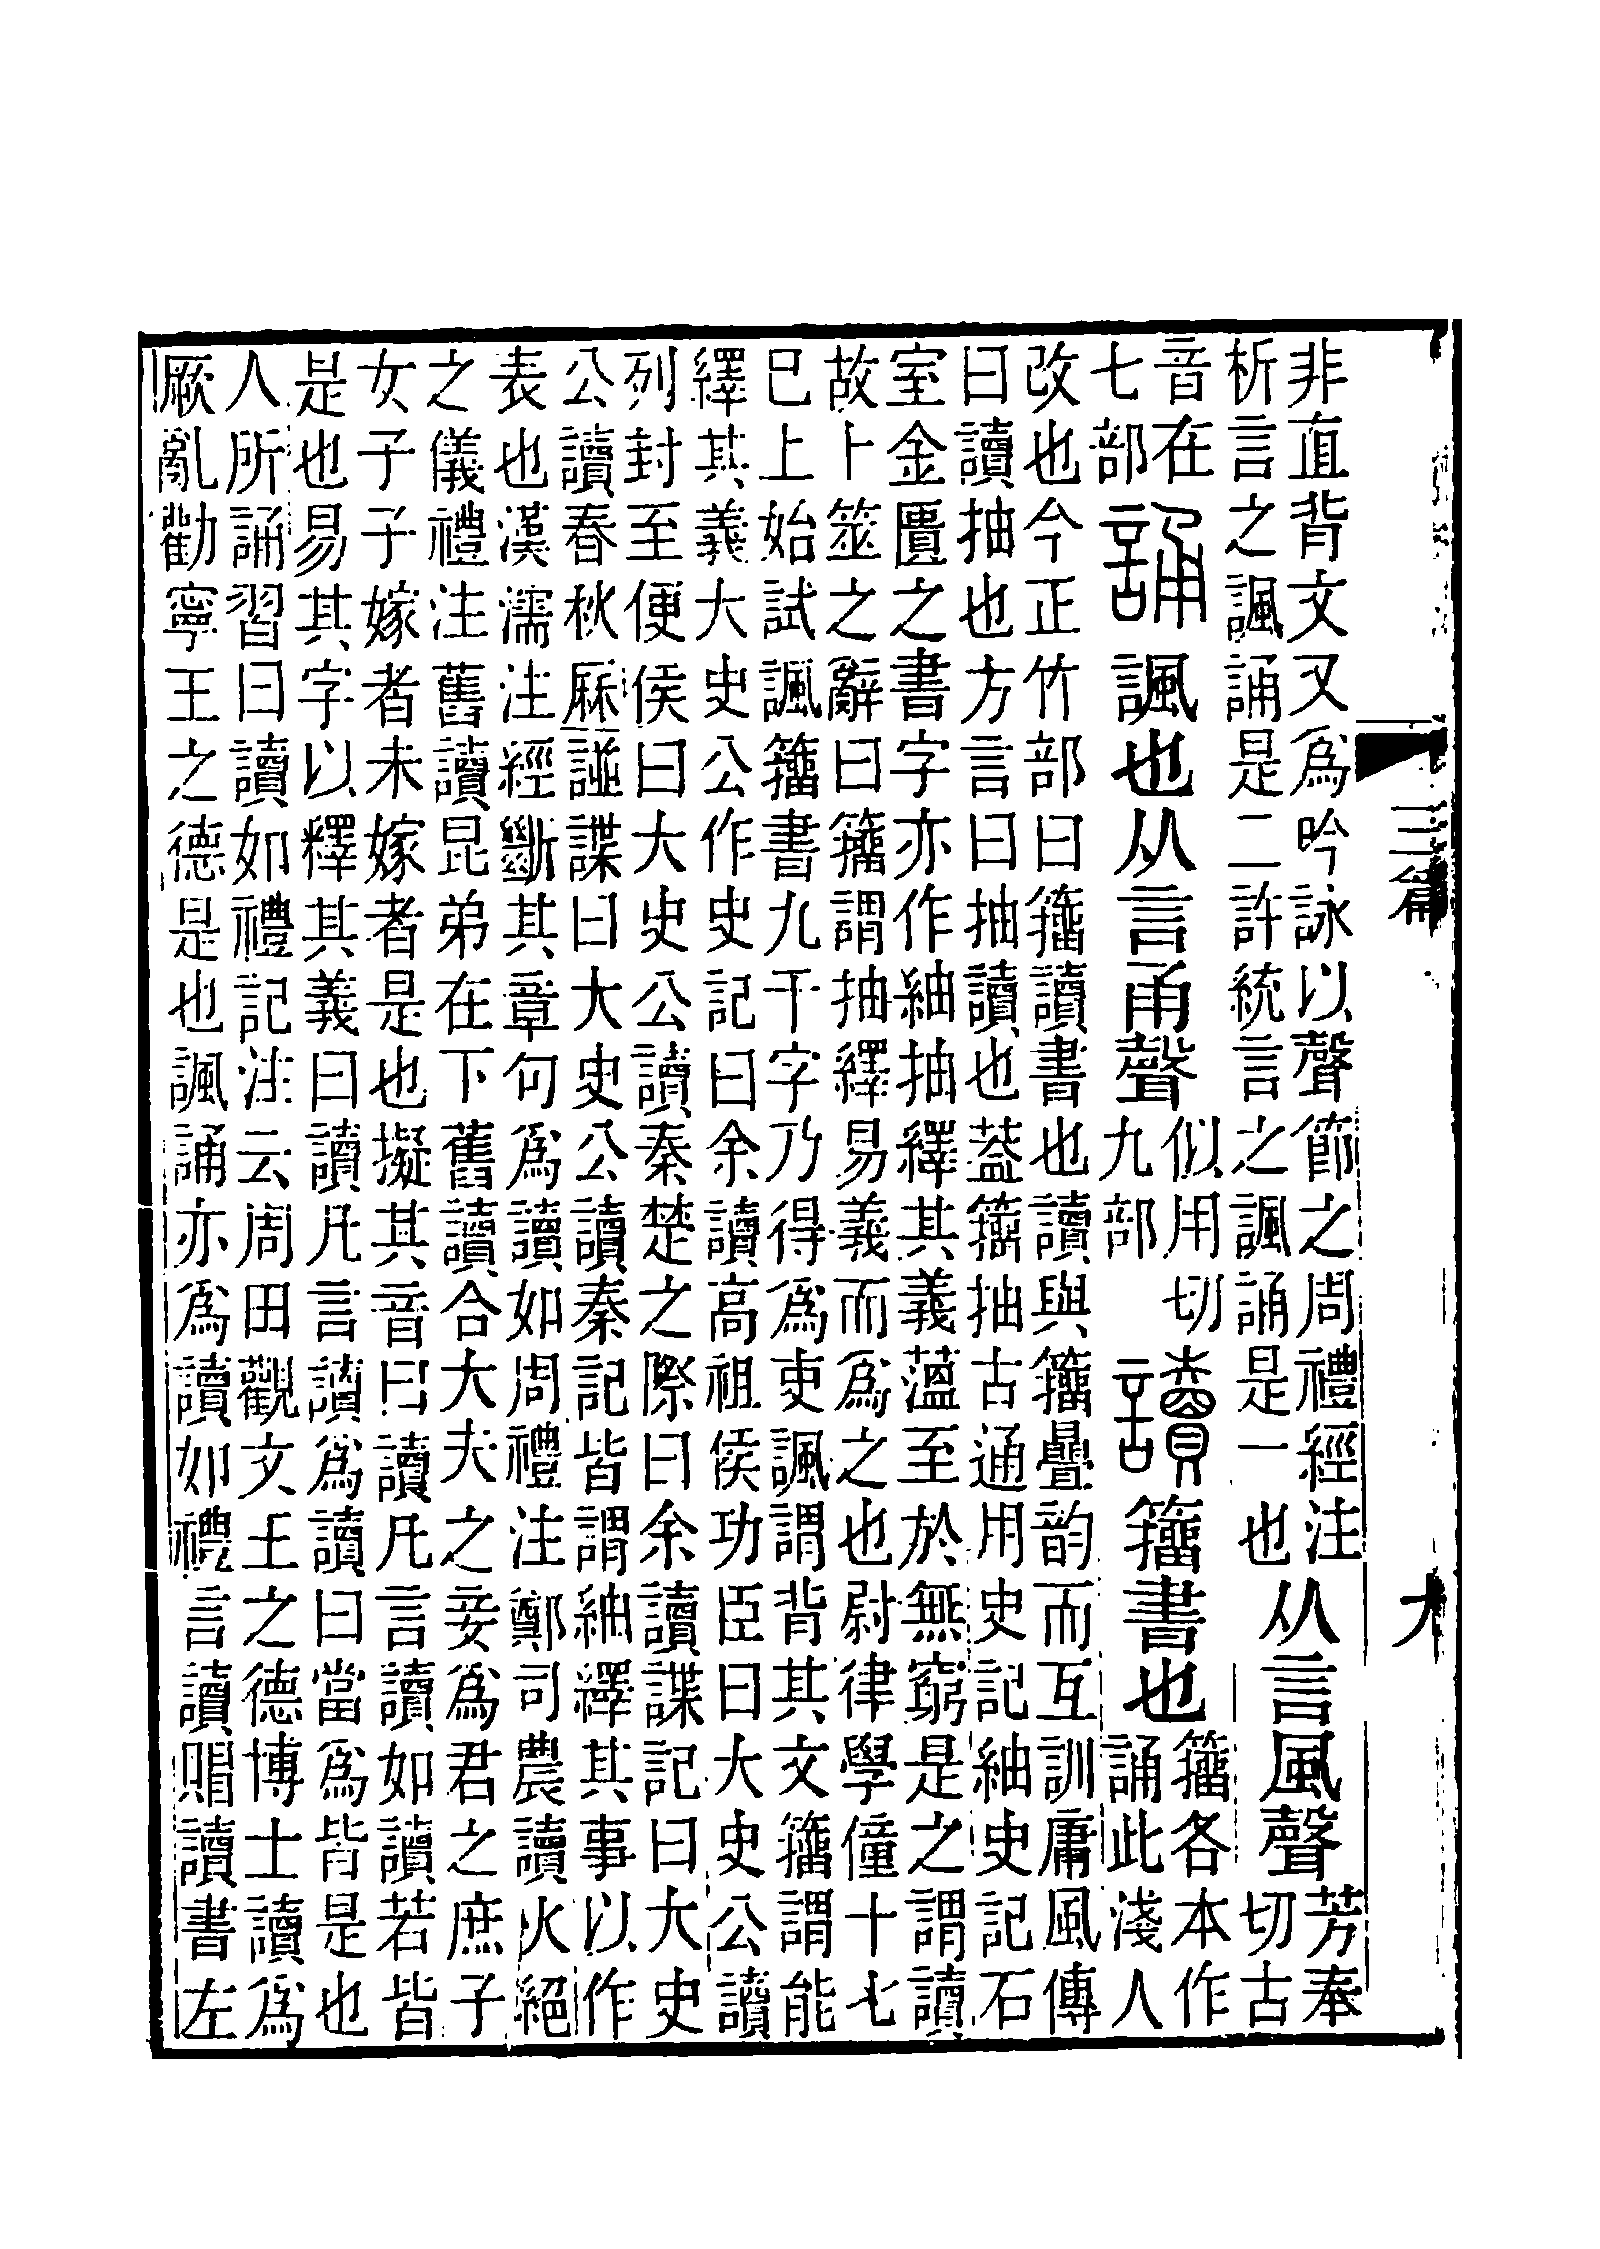 非直背文又爲吟詠以聲節之周禮經注
析言之諷誦是二許統言之諷誦是一也
从言風聲
芳奉
切古
音在
七部
誦諷也从言甬聲
似用切
九部
讀籒書也
籒各本作
誦此淺人
改也今正竹部曰籒讀書也讀與籒曡韵而互訓庸風傳
曰讀抽也方言曰抽讀也葢籒抽古通用史記紬史記石
室金匱之書字亦作紬抽繹其義薀至於無窮是之謂讀
故卜筮之辭曰籒謂抽繹易義而爲之也尉律學僮十七
巳上始試諷籒書九千字乃得爲吏諷謂背其文籒謂能
繹其義大史公作史記曰余讀高祖侯功臣曰大史公讀
列封至便侯曰大史公讀秦楚之際曰余讀諜記曰大史
公讀春秋厤諩諜曰大史公讀秦記皆謂紬繹其事以作
表也漢濡注經斷其章句爲讀如周禮注鄭司農讀火絕
之儀禮注舊讀昆弟在下舊讀合大夫之妾爲君之庶子
女子子嫁者未嫁者是也擬其音曰讀凡言讀如讀若皆
是也易其字以釋其義曰讀凡言讀爲讀曰當爲皆是也
人所誦習曰讀如禮記注云周田觀文王之德博士讀爲
厥亂勸寧王之德是也諷誦亦爲讀如禮言讀賵讀書左
三篇